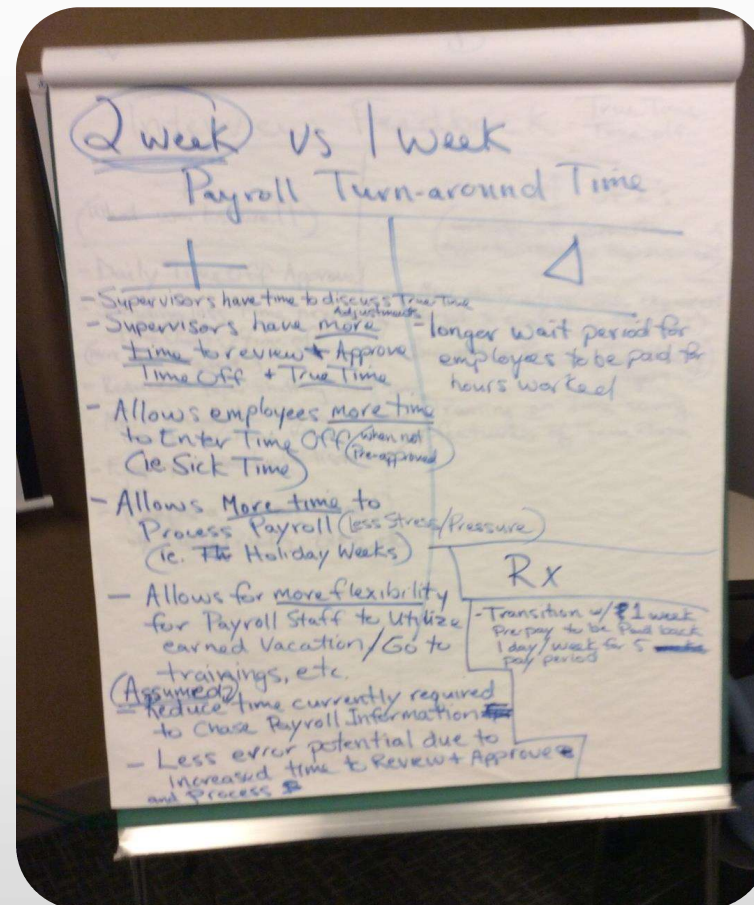 2 week vs 1 week
Payroll Turn-around Time
+
- Supervisors have time to discuss True Time
Adjustments
- Supervisors have more
time to review + Approve
Time Off + True Time
- Allows employees more time
to Enter Time Off (when not
Pre-approved)
(ie Sick Time)
- Allows More time to
Process Payroll (less Stress/Pressure)
(ie. Holiday Weeks)
- Allows for more flexibility
for Payroll Staff to Utilize
earned Vacation/Go to
trainings, etc.
(Assumed)
- Reduce time currently required
to Chase Payroll Information
- Less error potential due to
increased time to Review + Approve
and Process
Δ
- longer wait period for
employees to be paid for
hours worked
Rx
- Transition w/ 1 week
Pre pay to be Paid back
1 day/week for 5
pay period